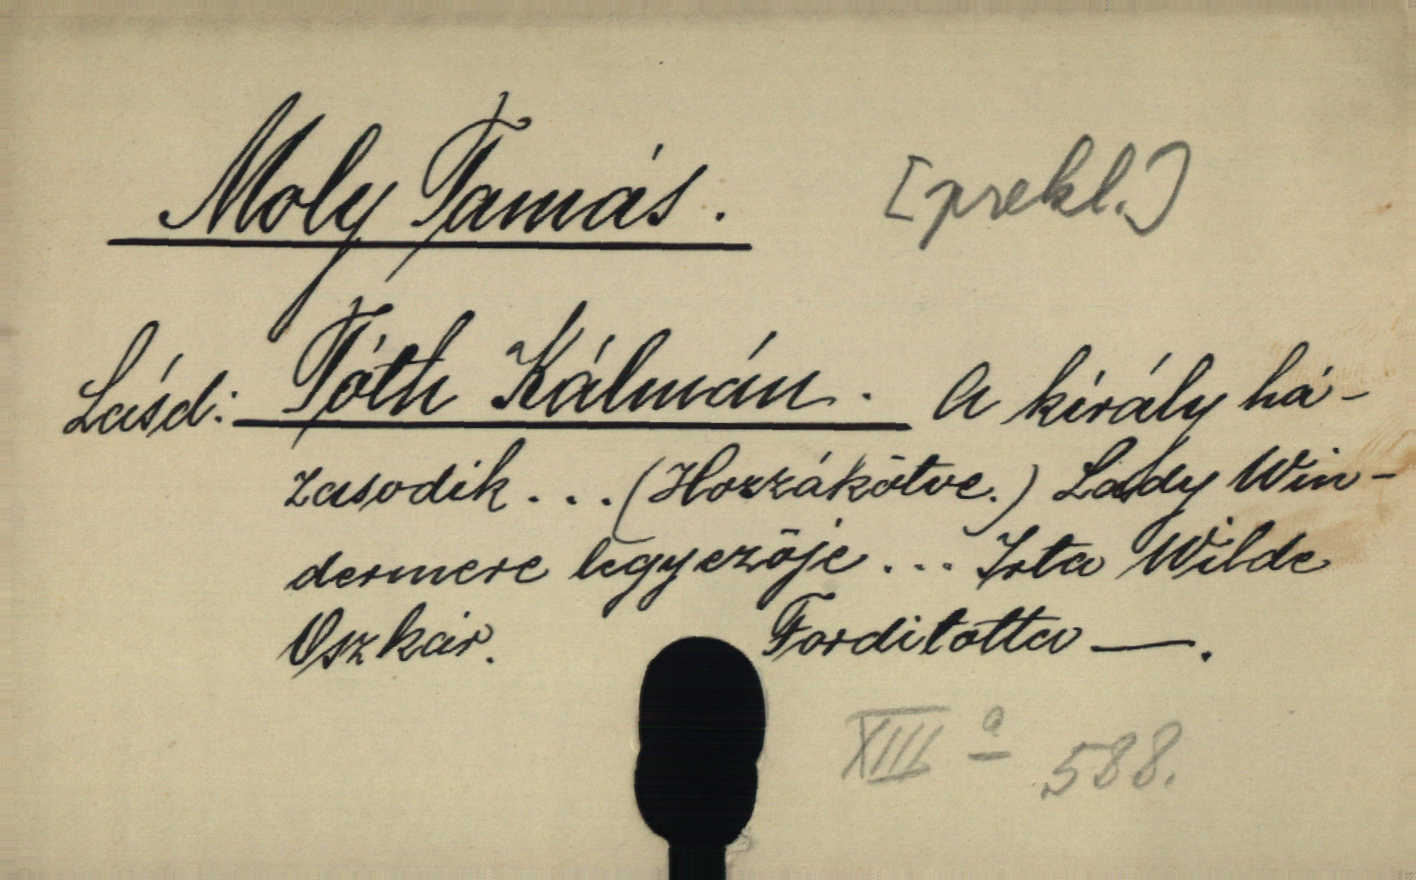 Moly Tamás. [prekl.]
Lásd: Tóth Kálmán. A király há-
zasodik... (Hozzákötve.) Lady Win-
dermere legyezője... Irta Wilde
Oszkár. Forditotta —.
XIII a 588.